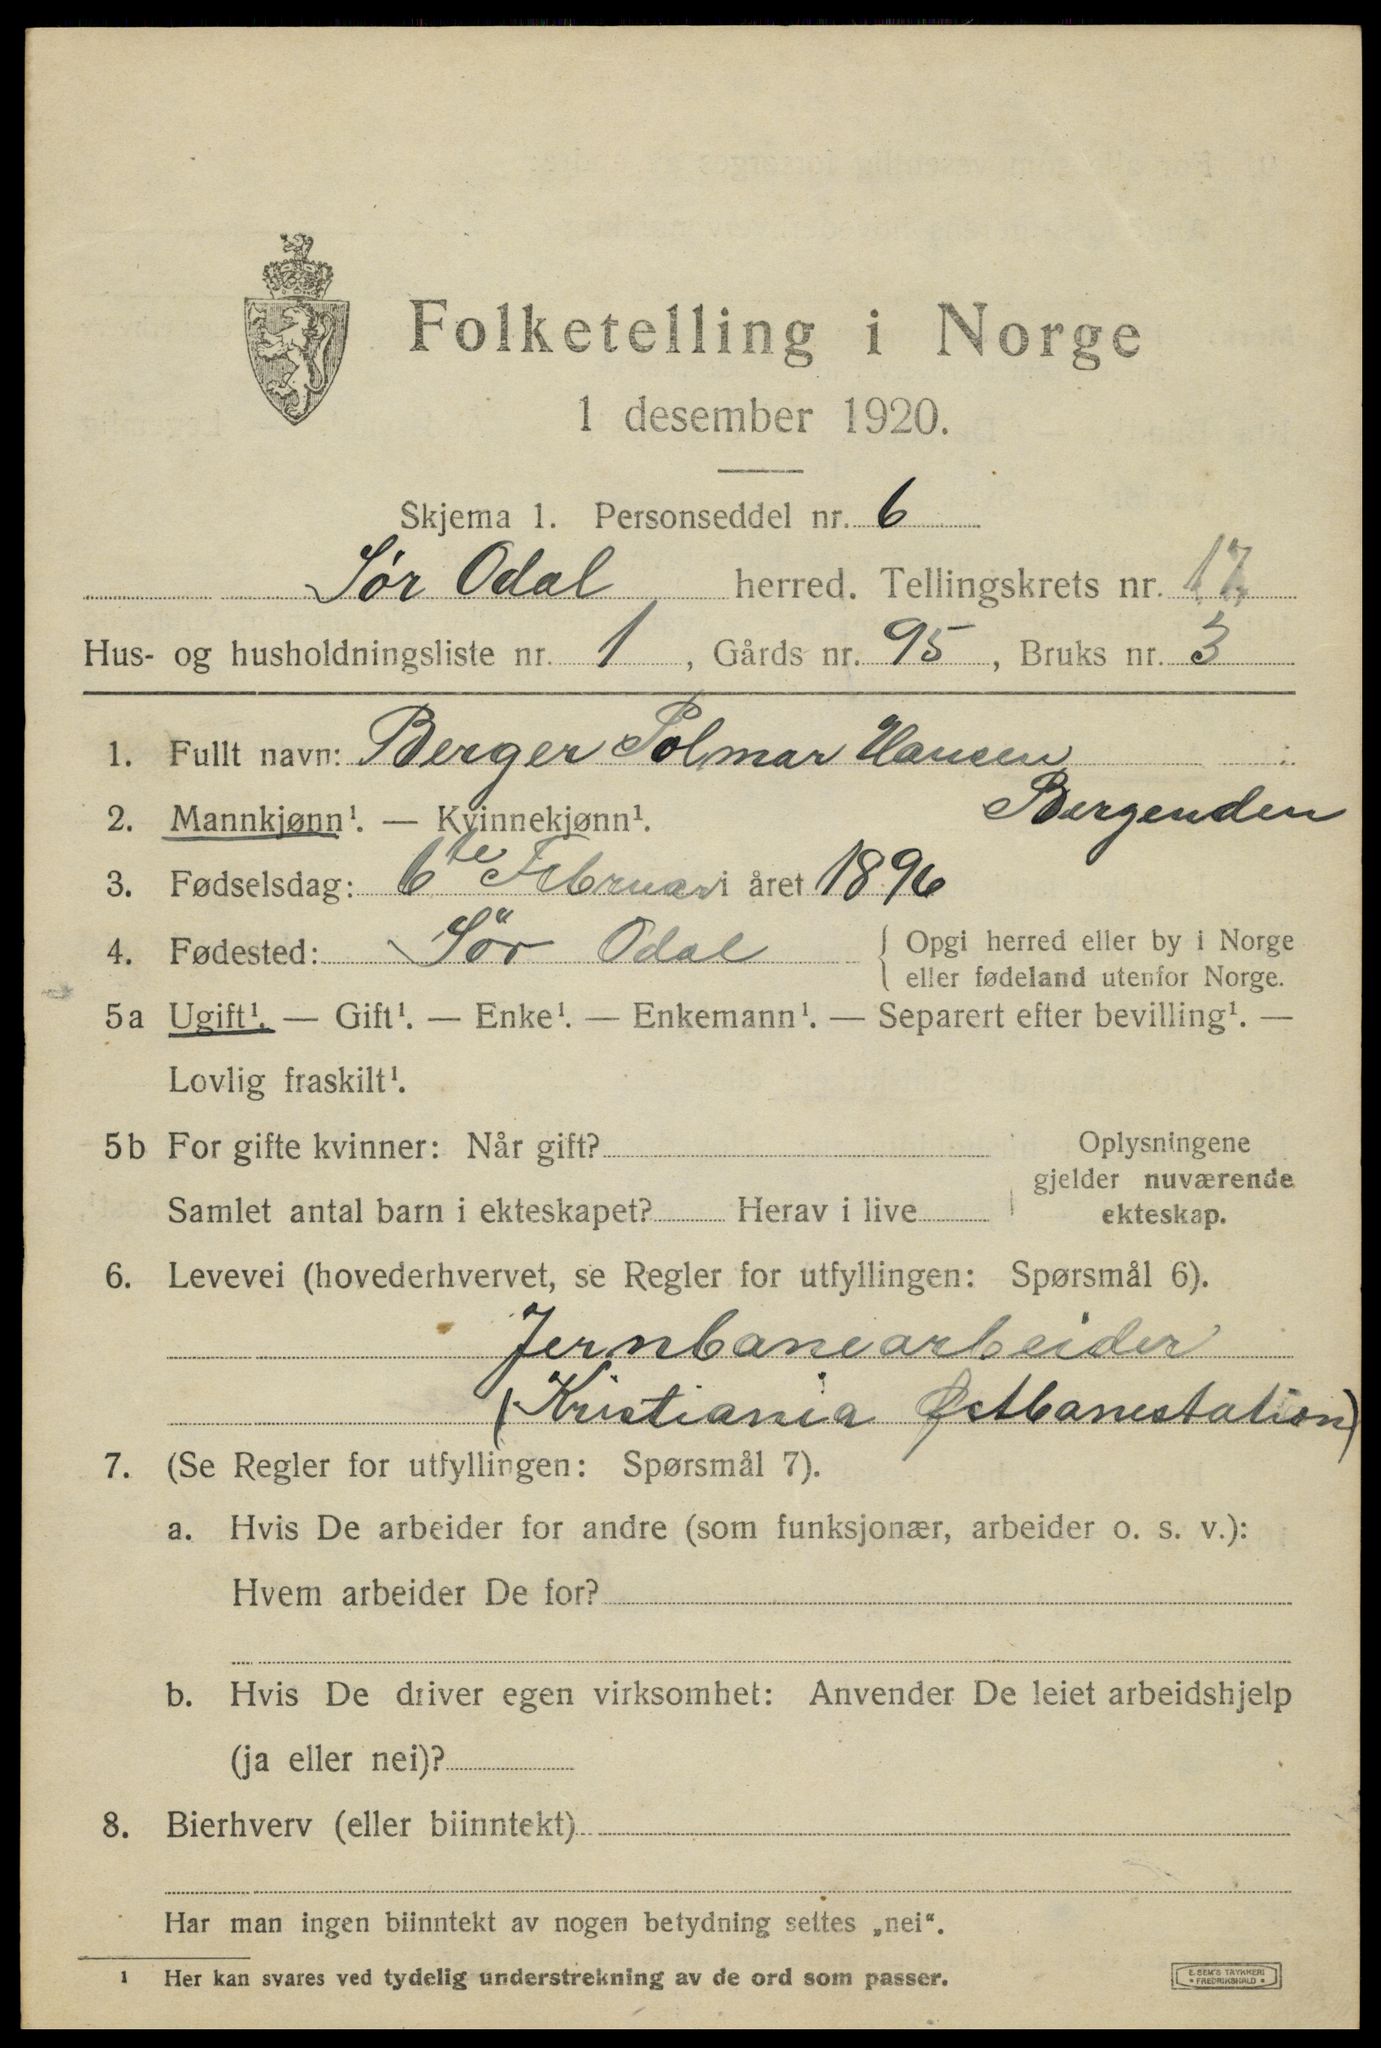 Folketelling i Norge
1 desember 1920.
Skjema 1. Personseddel nr. 6
Sør Odal herred. Tellingskrets nr. 17
Hus- og husholdningsliste nr. 1, Gårds nr. 95, Bruks nr. 3
1. Fullt navn: Berger Solmar Hansen
Bergenden
2. Mannkjønn¹. — Kvinnekjønn¹.
3. Fødselsdag: 6te Februar i året 1896
4. Fødested: Sør Odal { Opgi herred eller by i Norge
eller fødeland utenfor Norge.
5a Ugift¹. — Gift¹. — Enke¹. — Enkemann¹. — Separert efter bevilling¹. —
Lovlig fraskilt¹.
5b For gifte kvinner: Når gift?
Samlet antal barn i ekteskapet? Herav i live
Oplysningene
gjelder nuværende
ekteskap.
6. Levevei (hovederhvervet, se Regler for utfyllingen: Spørsmål 6).
Jernbanearbeider
(Kristiania Østbanestation)
7. (Se Regler for utfyllingen: Spørsmål 7).
a. Hvis De arbeider for andre (som funksjonær, arbeider o. s. v.):
Hvem arbeider De for?
b. Hvis De driver egen virksomhet: Anvender De leiet arbeidshjelp
(ja eller nei)?
8. Bierhverv (eller biinntekt)
Har man ingen biinntekt av nogen betydning settes „nei“.
¹ Her kan svares ved tydelig understrekning av de ord som passer.
E. SEM'S TRYKKERI
• FREDRIKSHALD •